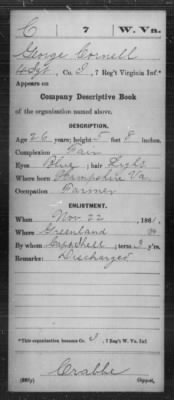 C | 7 | W. Va.
George Cornell
4 Sgt, Co. I, 7 Reg't Virginia Inf*
Appears on
Company Descriptive Book
of the organization named above.
DESCRIPTION.
Age 26 years; height 5 feet 8 inches.
Complexion Fair
Eyes Blue; hair Light
Where born Hampshire Va.
Occupation Farmer
ENLISTMENT.
When Nov 22, 1861.
Where Greenland
By whom; term 3 y'rs.
Remarks: Discharged
*This organization became Co. I, 7 Reg't W. Va. Inf.
Crabbe
Copyist.